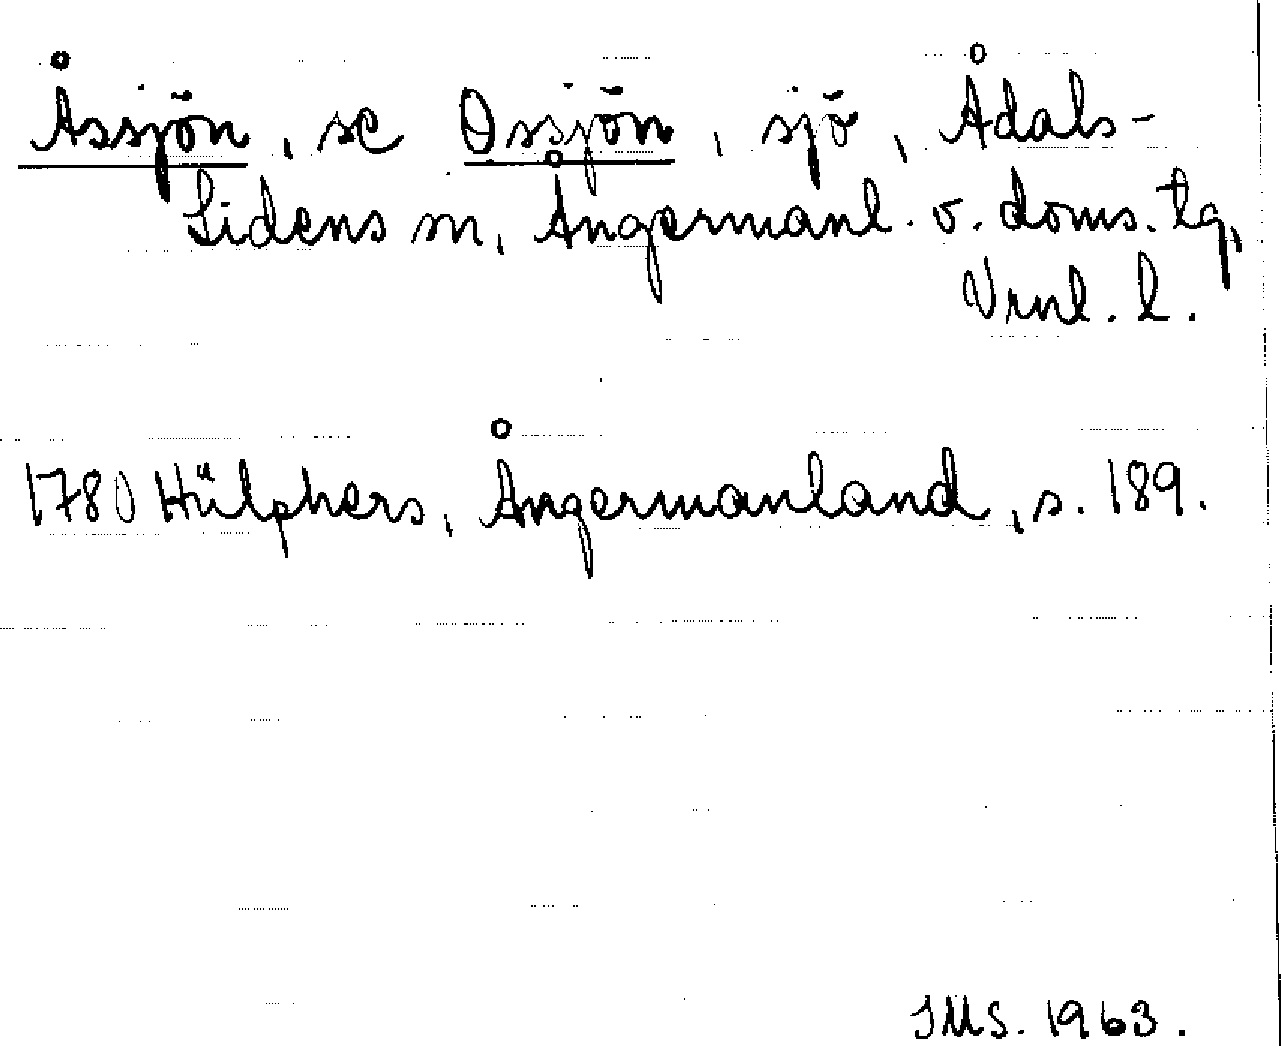 Åssjön, se Ossjön, sjö, Ådals-
Lidens sn, Ångermanl. v. doms. tg,
Vrnl. l.
1780 Hülphers, Ångermanland, s. 189.
JMS. 1963.